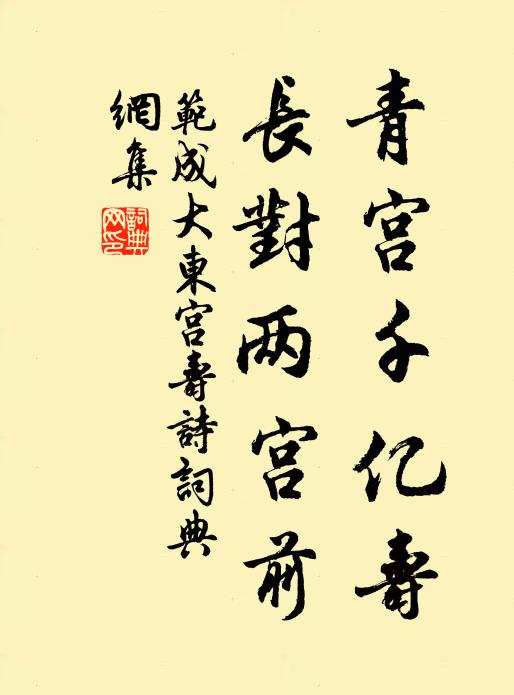 青宫千亿壽
長對两宫前
範成大東宫壽詩詞典
網集
詞典
网印